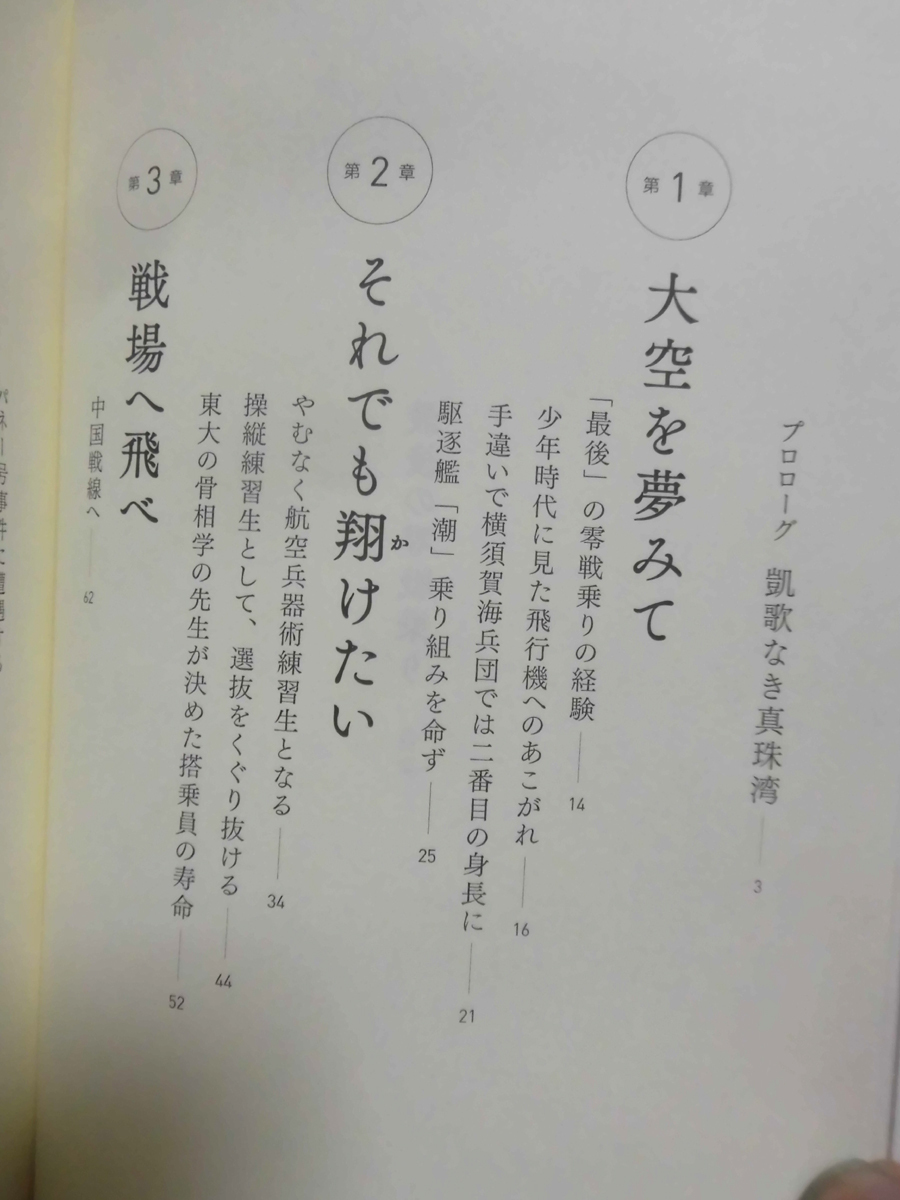 プロローグ 凱歌なき真珠湾 3
第1章
大空を夢みて
「最後」の零戦乗りの経験 14
少年時代に見た飛行機へのあこがれ 16
手違いで横須賀海兵団では二番目の身長に 21
駆逐艦「潮」乗り組みを命ず 25
第2章
それでも翔けたい
か
やむなく航空兵器術練習生となる 34
操縦練習生として、選抜をくぐり抜ける 44
東大の骨相学の先生が決めた搭乗員の寿命 52
第3章
戦場へ飛べ
中国戦線へ 62